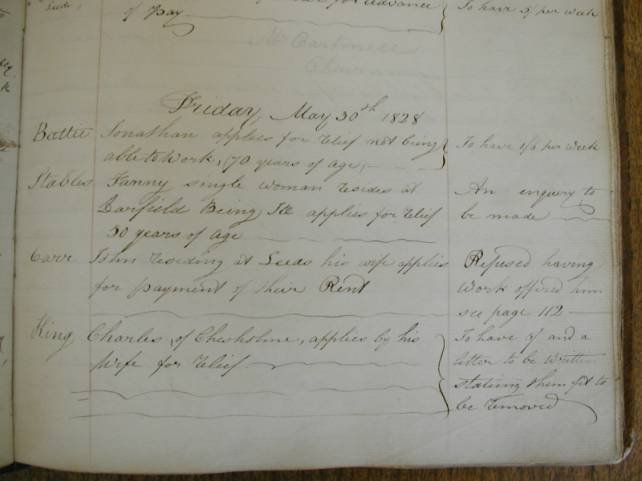 Leeds
for advance
of Pay
To have per week
Chairman
Friday May 30th 1828
Battie Jonathan applies for relief not being
able to work, 70 years of age,
To have per week
Stables Fanny single woman resides at
Being Ill applies for relief
30 years of age
An enquiry to
be made
Carr John residing at Leeds his wife applies
for payment of their Rent
Refused having
work offered him
see page 112
King Charles, of applies by his
wife for relief
To have and a
letter to be written
stating them fit to
be removed